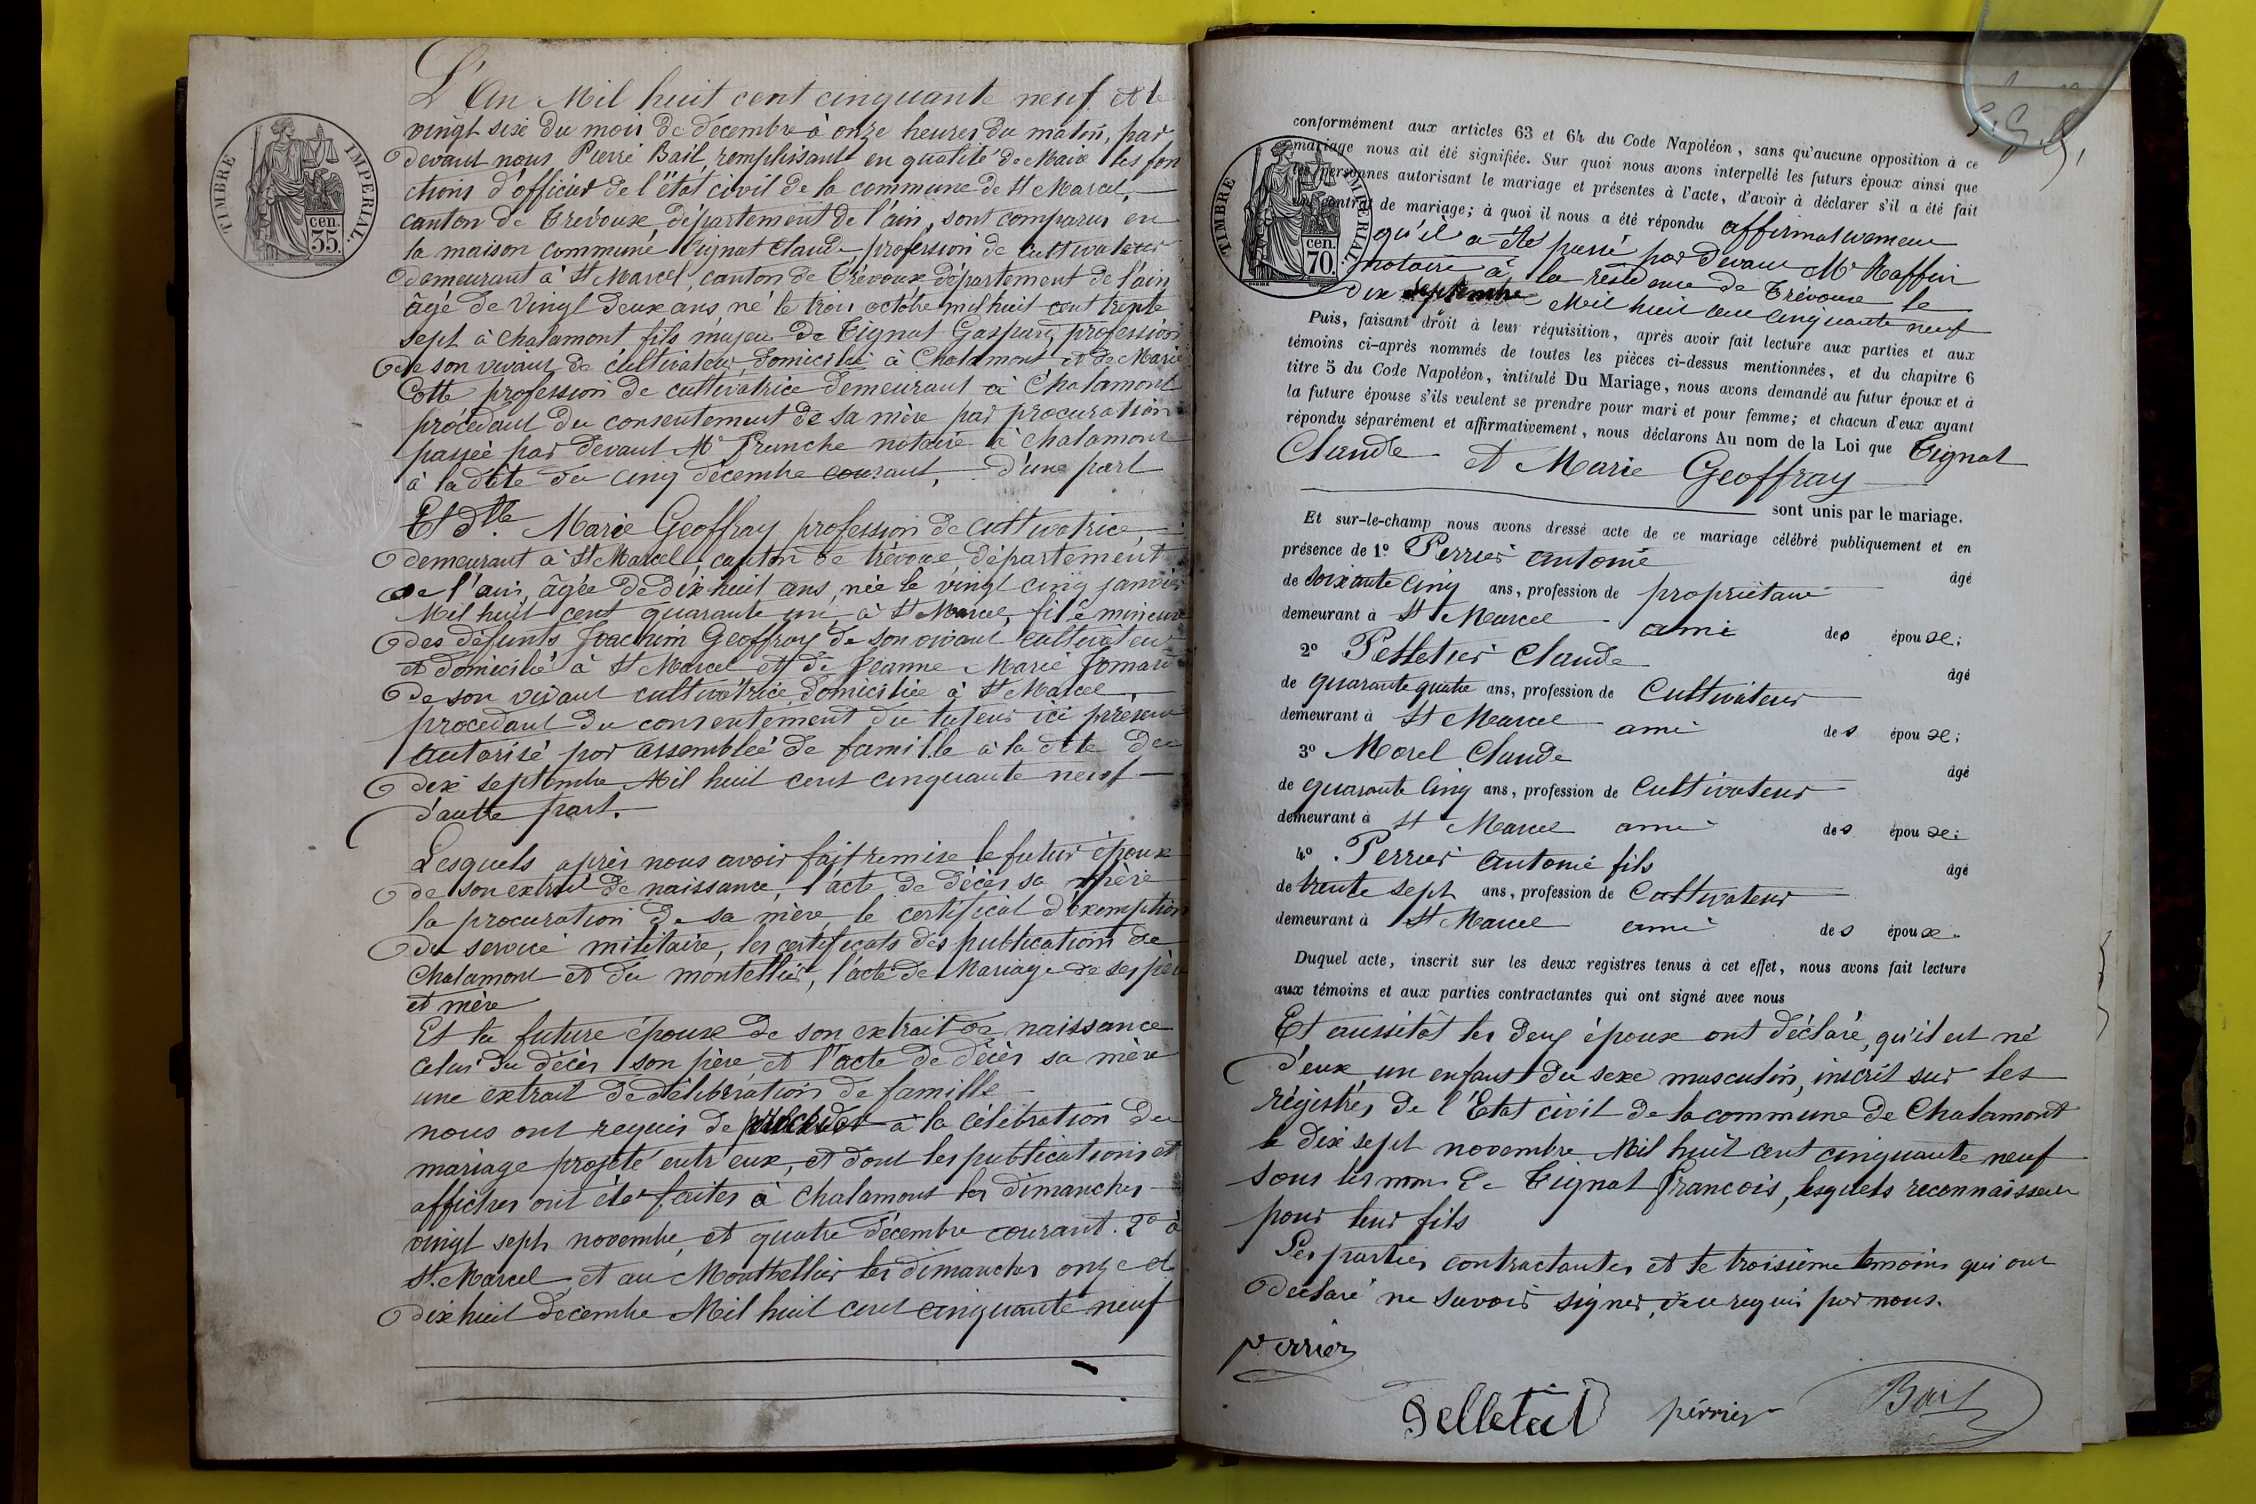 TIMBRE IMPERIAL.
cen.
35.
L'An Mil huit cent cinquante neuf et le
vingt sixe du mois de décembre à onze heures du matin, par
devant nous Pierre Bail, remplissant en qualité de Maire les fon
ctions d'officier de l'état civil de la commune de St Marcel,
canton de Trévoux, département de l'ain, sont comparus en
la maison commune Tignat Claude profession de cultivateur
demeurant à St Marcel, canton de Trévoux département de l'ain
âgé de vingt deux ans, né le trois octobre mil huit cent trente
sept à chalamont fils majeu de Tignat Gaspard, profession
de son vivant de cultivateur, domicilié à Chalamont, et de Marie
Cotte profession de cultivatrice demeurant à Chalamont
procédant du consentement de sa mère par procuration
passée par devant Me Prunche notaire à chalamont
à la date du cinq décembre courant, d'une part
Et dlle Marie Geoffray profession de cultivatrice,
demeurant à St Marcel, canton de trévoux, département
de l'ain, âgée de dix huit ans, née le vingt cinq janvier
Mil huit cent quarante un à St Marcel, fille mineure
des défunts Joachim Geoffray de son vivant cultivateur
et domicilié à St Marcel et de Jeanne Marie Jomard
de son vivant cultivatrice domiciliée à St Marcel,
procedant du consentement du tuteur ici présent
autorisé par assemblée de famille à la date du
dix septembre Mil huit cent cinquante neuf
d'autre part.
Lesquels après nous avoir fait remise le futur époux
de son extrait de naissance, l'acte de décès sa père
la procuration de sa mère, le certificat d'exemption
du service militaire, les certificats des publications de
Chalamont et du montellier, l'acte de Mariage de ses père
et mère
Et la future épouse de son extrait de naissance
celui du décès son père, et l'acte de décès sa mère
une extrait de délibération de famille
nous ont requis de procéder à la célébration du
mariage projeté entr'eux, et dont les publications et
affiches ont été faites à Chalamont les dimanches
vingt sept novembre, et quatre décembre courant. 2° à
St. Marcel et au Monthellier les dimanches onze et
dix huit décembre Mil huit cent cinquante neuf
TIMBRE IMPERIAL.
cen.
70.
conformément aux articles 63 et 64 du Code Napoléon, sans qu'aucune opposition à ce
mariage nous ait été signifiée. Sur quoi nous avons interpellé les futurs époux ainsi que
les personnes autorisant le mariage et présentes à l'acte, d'avoir à déclarer s'il a été fait
un contrat de mariage; à quoi il nous a été répondu affirmativement
qu'il a été passé par devant Me Raffin
notaire à la résidence de Trévoux le
dix septembre Mil huit cent cinquante neuf
Puis, faisant droit à leur réquisition, après avoir fait lecture aux parties et aux
témoins ci-après nommés de toutes les pièces ci-dessus mentionnées, et du chapitre 6
titre 5 du Code Napoléon, intitulé Du Mariage, nous avons demandé au futur époux et à
la future épouse s'ils veulent se prendre pour mari et pour femme; et chacun d'eux ayant
répondu séparément et affirmativement, nous déclarons Au nom de la Loi que Tignat
Claude et Marie Geoffray
sont unis par le mariage.
Et sur-le-champ nous avons dressé acte de ce mariage célébré publiquement et en
présence de 1.° Perrier antoine âgé
de soixante cinq ans, profession de propriétaire
demeurant à St Marcel ami des époux;
2° Pelletier Claude âgé
de quarante quatre ans, profession de Cultivateur
demeurant à St Marcel ami des époux;
3° Morel Claude âgé
de quarante cinq ans, profession de Cultivateur
demeurant à St Marcel ami des époux;
4° Perrier antoine fils âgé
de trente sept ans, profession de Cultivateur
demeurant à St Marcel ami des époux.
Duquel acte, inscrit sur les deux registres tenus à cet effet, nous avons fait lecture
aux témoins et aux parties contractantes qui ont signé avec nous
Et aussitôt les deux époux ont déclaré, qu'il est né
d'eux, un enfant du sexe masculin, inscrit sur les
régistres de l'Etat civil de la commune de Chalamont
le dix sept novembre Mil huit cent cinquante neuf
sous les nom de Tignat François, lesquels reconnaissent
pour leur fils
Les parties contractantes et le troisième témoins qui ont
déclaré ne savoir signer, de ce requis par nous.
perrier
Pelletier perrier Bail